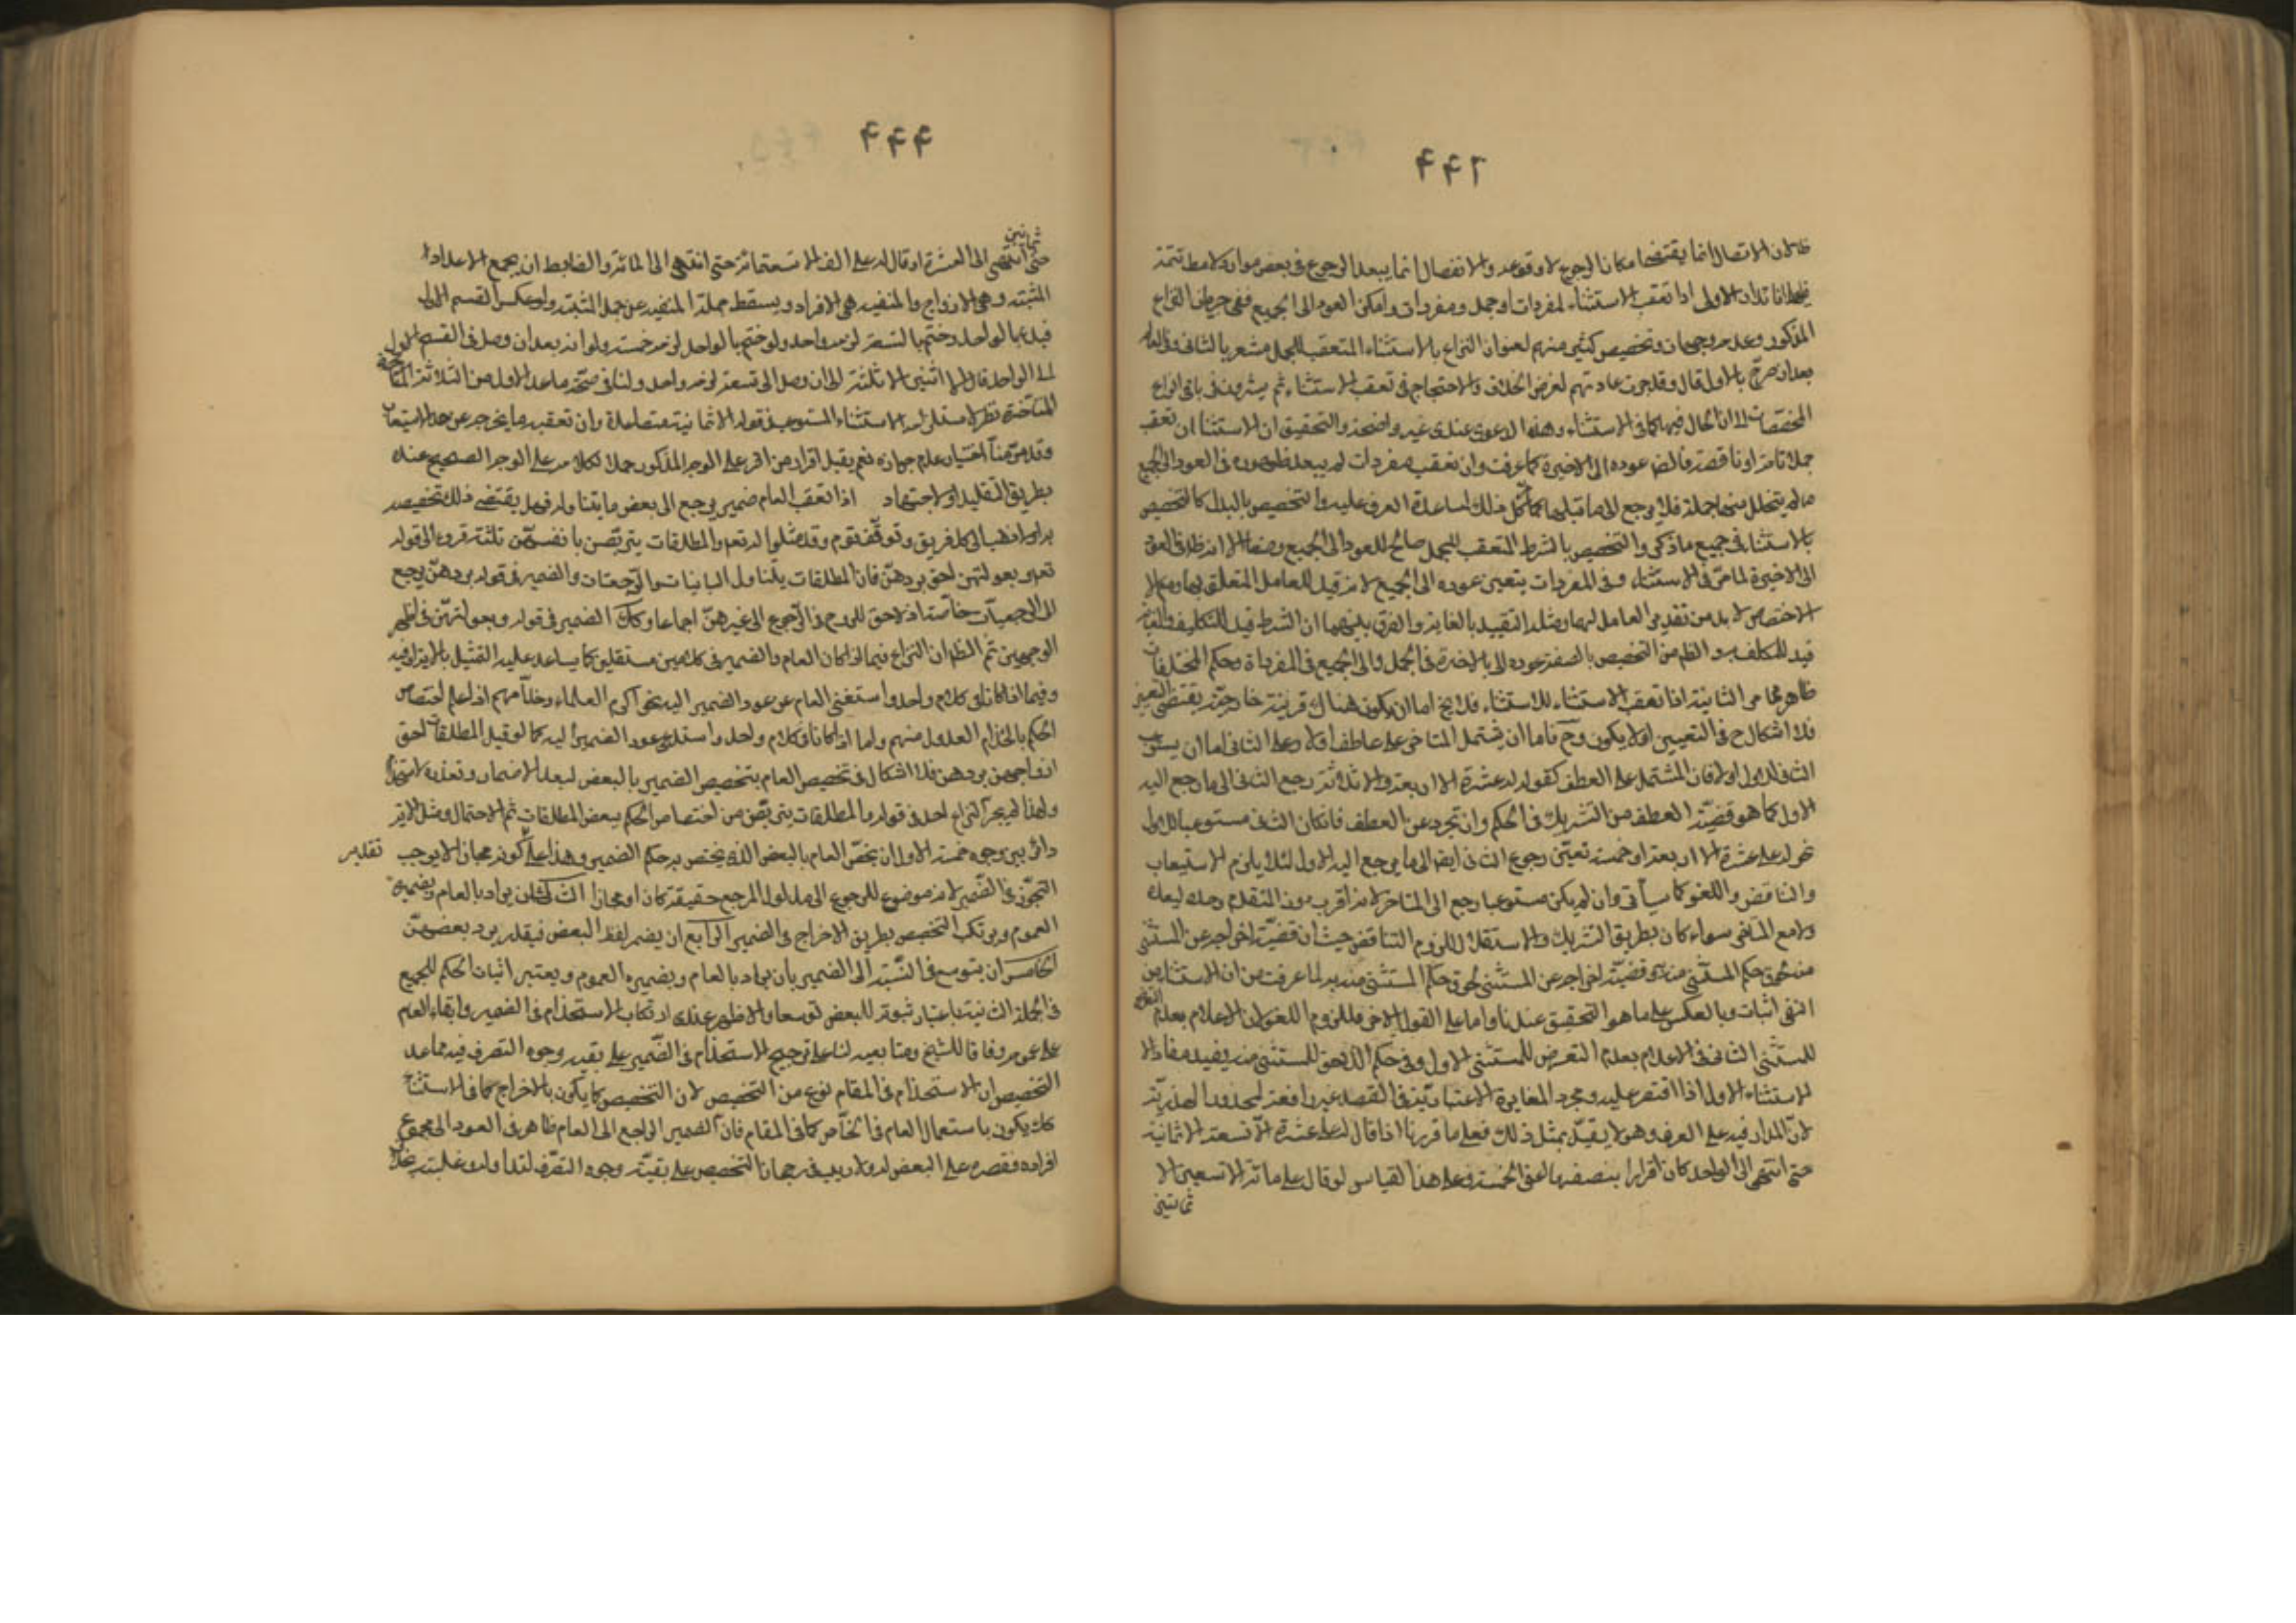 ۴۴۲
فلان الاتصال انما يقتضى امكان الرجوع لا وقوعه والانفصال انما يبعد الرجوع فى بعض موارده لا مط تتمة
الاولى اذا تعقب الاستثناء لمفردات او جمل ومفردات وامكن العود الى الجميع ففى جريان النزاع
المذكور وعدمه وجهان وتخصيص كثير منهم لعنوان النزاع بالاستثناء المتعقب للجمل مشعر بالثانى
بعد ان صرح بالاول قال وقد جرت عادتهم لفرض الخلاف والاحتجاج فى تعقب الاستثناء ثم يشيرون فى باقى انواع
المخصصات الا ان الحال فيها كما فى الاستثناء وهذه الدعوى عندى غير واضحة والتحقيق ان الاستثناء ان تعقب
جملا تامة او ناقصة فالظ عوده الى الاخيرة كما عرفت وان تعقب مفردات لم يبعد ظهوره فى العود الى الجميع
ما لم يتخلل بينها جملة فلا يرجع الى ما قبلها كل ذلك لمساعدة العرف عليه والتخصيص بالبدل كالتخصيص
بالاستثناء فى جميع ما ذكر والتخصيص بالشرط المتعقب للجمل صالح للعود الى الجميع وضعا الا انه ظ فى العود
الى الاخيرة لما مر فى الاستثناء وفى المفردات يتعين عوده الى الجميع لانه قيد للعامل المتعلق بها
الاختصاص لا بد من تقديم العامل لها ومثله التقييد بالغاية والفرق بينهما ان الشرط قيد للتكليف والغاية
قيد للمكلف به والظ من التخصيص بالصفة عوده الى الاخيرة فى الجمل والى الجميع فى المفردات وحكم المختلفات
ظاهر مما مر الثانية اذا تعقب الاستثناء للاستثناء فلا يخ اما ان يكون هناك قرينة خارجة يقتضى التعيين
فلا اشكال ح فى التعيين او لا يكون وح فاما ان يشتمل المتاخر على عاطف او لا وعلى الثانى اما ان يستوعب
الثانى للاول او لا فان المشتمل على العطف كقوله له عشرة الا اربعة والا ثلاثة رجع الثانى الى ما رجع اليه
الاول كما هو قضية العطف من التشريك فى الحكم وان تجرد عن العطف فان كان الثانى مستوعبا للاول
نحو له على عشرة الا اربعة الا خمسة تعين رجوع الثانى ايضا الى ما يرجع اليه الاول لئلا يلزم الاستيعاب
والتناقض واللغو كما سيأتى وان لم يكن مستوعبا رجع الى المتاخر لانه اقرب دون المتقدم وحده لبعده
ولا مع المتأخر سواء كان بطريق التشريك والاستقلال للزوم التناقض حيث ان قضية اخراجه عن المستثنى
منه لحوق حكم المستثنى منه به وقضية اخراجه عن المستثنى لحوق حكم المستثنى منه به لما عرفت من ان الاستثناء من
النفى اثبات وبالعكس على ما هو التحقيق عندنا واما على القول الاخر فللزوم اللغو لان الاعلام بعدم التعرض
للمستثنى الثانى فى الاعلام بعدم التعرض للمستثنى الاول وفى حكم اللاحق للمستثنى منه يفيد مفاد الا
الاستثناء الاول اذا اقتصر عليه ومجرد المغايرة الاعتبارية فى القصد غير رافعة لمحذور الهذرية
لان المدار فيه على العرف وهو لا يقبل بمثل ذلك فعلى ما قررنا اذا قال له على عشرة الا تسعة الا ثمانية
حتى انتهى الى الواحد كان اقرارا بنصفها اعنى الخمسة وعلى هذا القياس لو قال على مائة الا تسعين الا
ثمانين
۴۴۴
ثمانين
حتى انتهى الى العشرة او قال له على الف الا تسعمائة حتى انتهى الى المائة والضابط ان يجمع الاعداد
المثبتة وهى الازواج والمنفية هى الافراد ويسقط جملة المنفية عن جملة المثبتة ولو عكس القسم الاول
فبدء بالواحد وختم بالتسعة لزمه واحد ولو ختم بالواحد لزمه خمسة ولو انه بعد ان وصل فى القسم الاول
الى الواحد قال الا اثنين الا ثلثة الى ان وصل الى تسعة لزمه واحد ولنا فى صحة ما عدا الاول من الثلاثة
المتاخرة نظر لاستلزامه الاستثناء المستوعب فى قوله الا ثمانية متصاعدة وان تعقبه ما يخرجه عن حد الاستيعاب
وقد مر منا اختيار عدم جوازه نعم يقبل اقرار من اقر على الوجه المذكور حملا لكلامه على الوجه الصحيح عنده
بطريق التقليد او الاجتهاد اذا تعقب العام ضمير يرجع الى بعض ما يتناوله فهل يقتضى ذلك تخصيصه
به اولا ذهب الى كل فريق وتوقف قوم وقد مثلوا له تعم والمطلقات يتربصن بانفسهن ثلثة قروء الى قوله
تعم وبعولتهن احق بردهن فان المطلقات يتناول البائنات والرجعيات والضمير فى قوله بردهن يرجع
الى الرجعيات خاصة اذ لا حق للزوج فى الرجوع الى غيرهن اجماعا وكك الضمير فى قوله وبعولتهن فى اظهر
الوجهين ثم الظ ان النزاع فيما اذا كان العام والضمير فى كلامين مستقلين كما يساعد عليه التمثيل بالاية
وفيما اذا كانا فى كلام واحد واستغنى العام عن عود الضمير اليه نحو اكرم العلماء وخدامهم اذا علم اختصاص
الحكم بالخدام العدول منهم واما اذا كانا فى كلام واحد واستدعى عود الضمير اليه كما لو قيل المطلقات احق
ازواجهن بردهن فلا اشكال فى تخصيص العام بتخصيص الضمير بالبعض لبعد الاضمار وتعذر الاستخدام
ولهذا لم يجر النزاع احد فى قوله والمطلقات يتربصن من اختصاص الحكم ببعض المطلقات ثم الاحتمال ومثل الاية
دائر بين وجوه خمسة الاول ان يخص العام بالبعض الذى يختص به حكم الضمير وهذا على كونه مجازا لا يوجب تقليبه
التجوز فى الضمير لانه موضوع للرجوع الى مدلول المرجع حقيقة كان او مجازا الثالث ان يراد بالعام وبضميره
العموم ويرتكب التخصيص بطريق الاخراج فى الضمير الرابع ان يضمر لفظ البعض فيقدر برد بعضهن
الخامس ان يتوسع فى النسبة الى الضمير بان يراد بالعام وبضميره العموم ويعتبر اثبات الحكم للجميع
فى الجملة الثانية باعتبار ثبوته للبعض توسعا والاظهر عندى ارتكاب الاستخدام فى الضمير وابقاء العام
على عمومه وفاقا للشيخ ومتابعيه لنا على ترجيح الاستخدام فى الضمير على بقية وجوه التصرف فيه ما عدا
التخصيص ان الاستخدام فى المقام نوع من التخصيص لان التخصيص كما يكون بالاخراج كما فى الاستثناء
كك يكون باستعمال العام فى الخاص كما فى المقام فان الضمير الراجع الى العام ظاهر فى العود الى مجموع
افراده فقصره على البعض ولا ريب فى رجحان التخصيص على بقية وجوه التصرف لتداوله وغلبته بخلاف